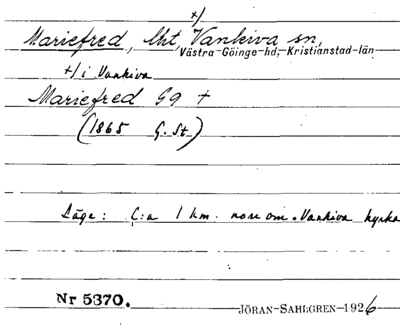 +/
Mariefred, lht, Vankiva sn,
Västra-Göinge-hd, Kristianstad-län
+/ i Vankiva
Mariefred Gg +
(1865 G. St.)
Läge: C:a 1 km. norr om Vankiva kyrka
Nr 5370.
JÖRAN-SAHLGREN-1926